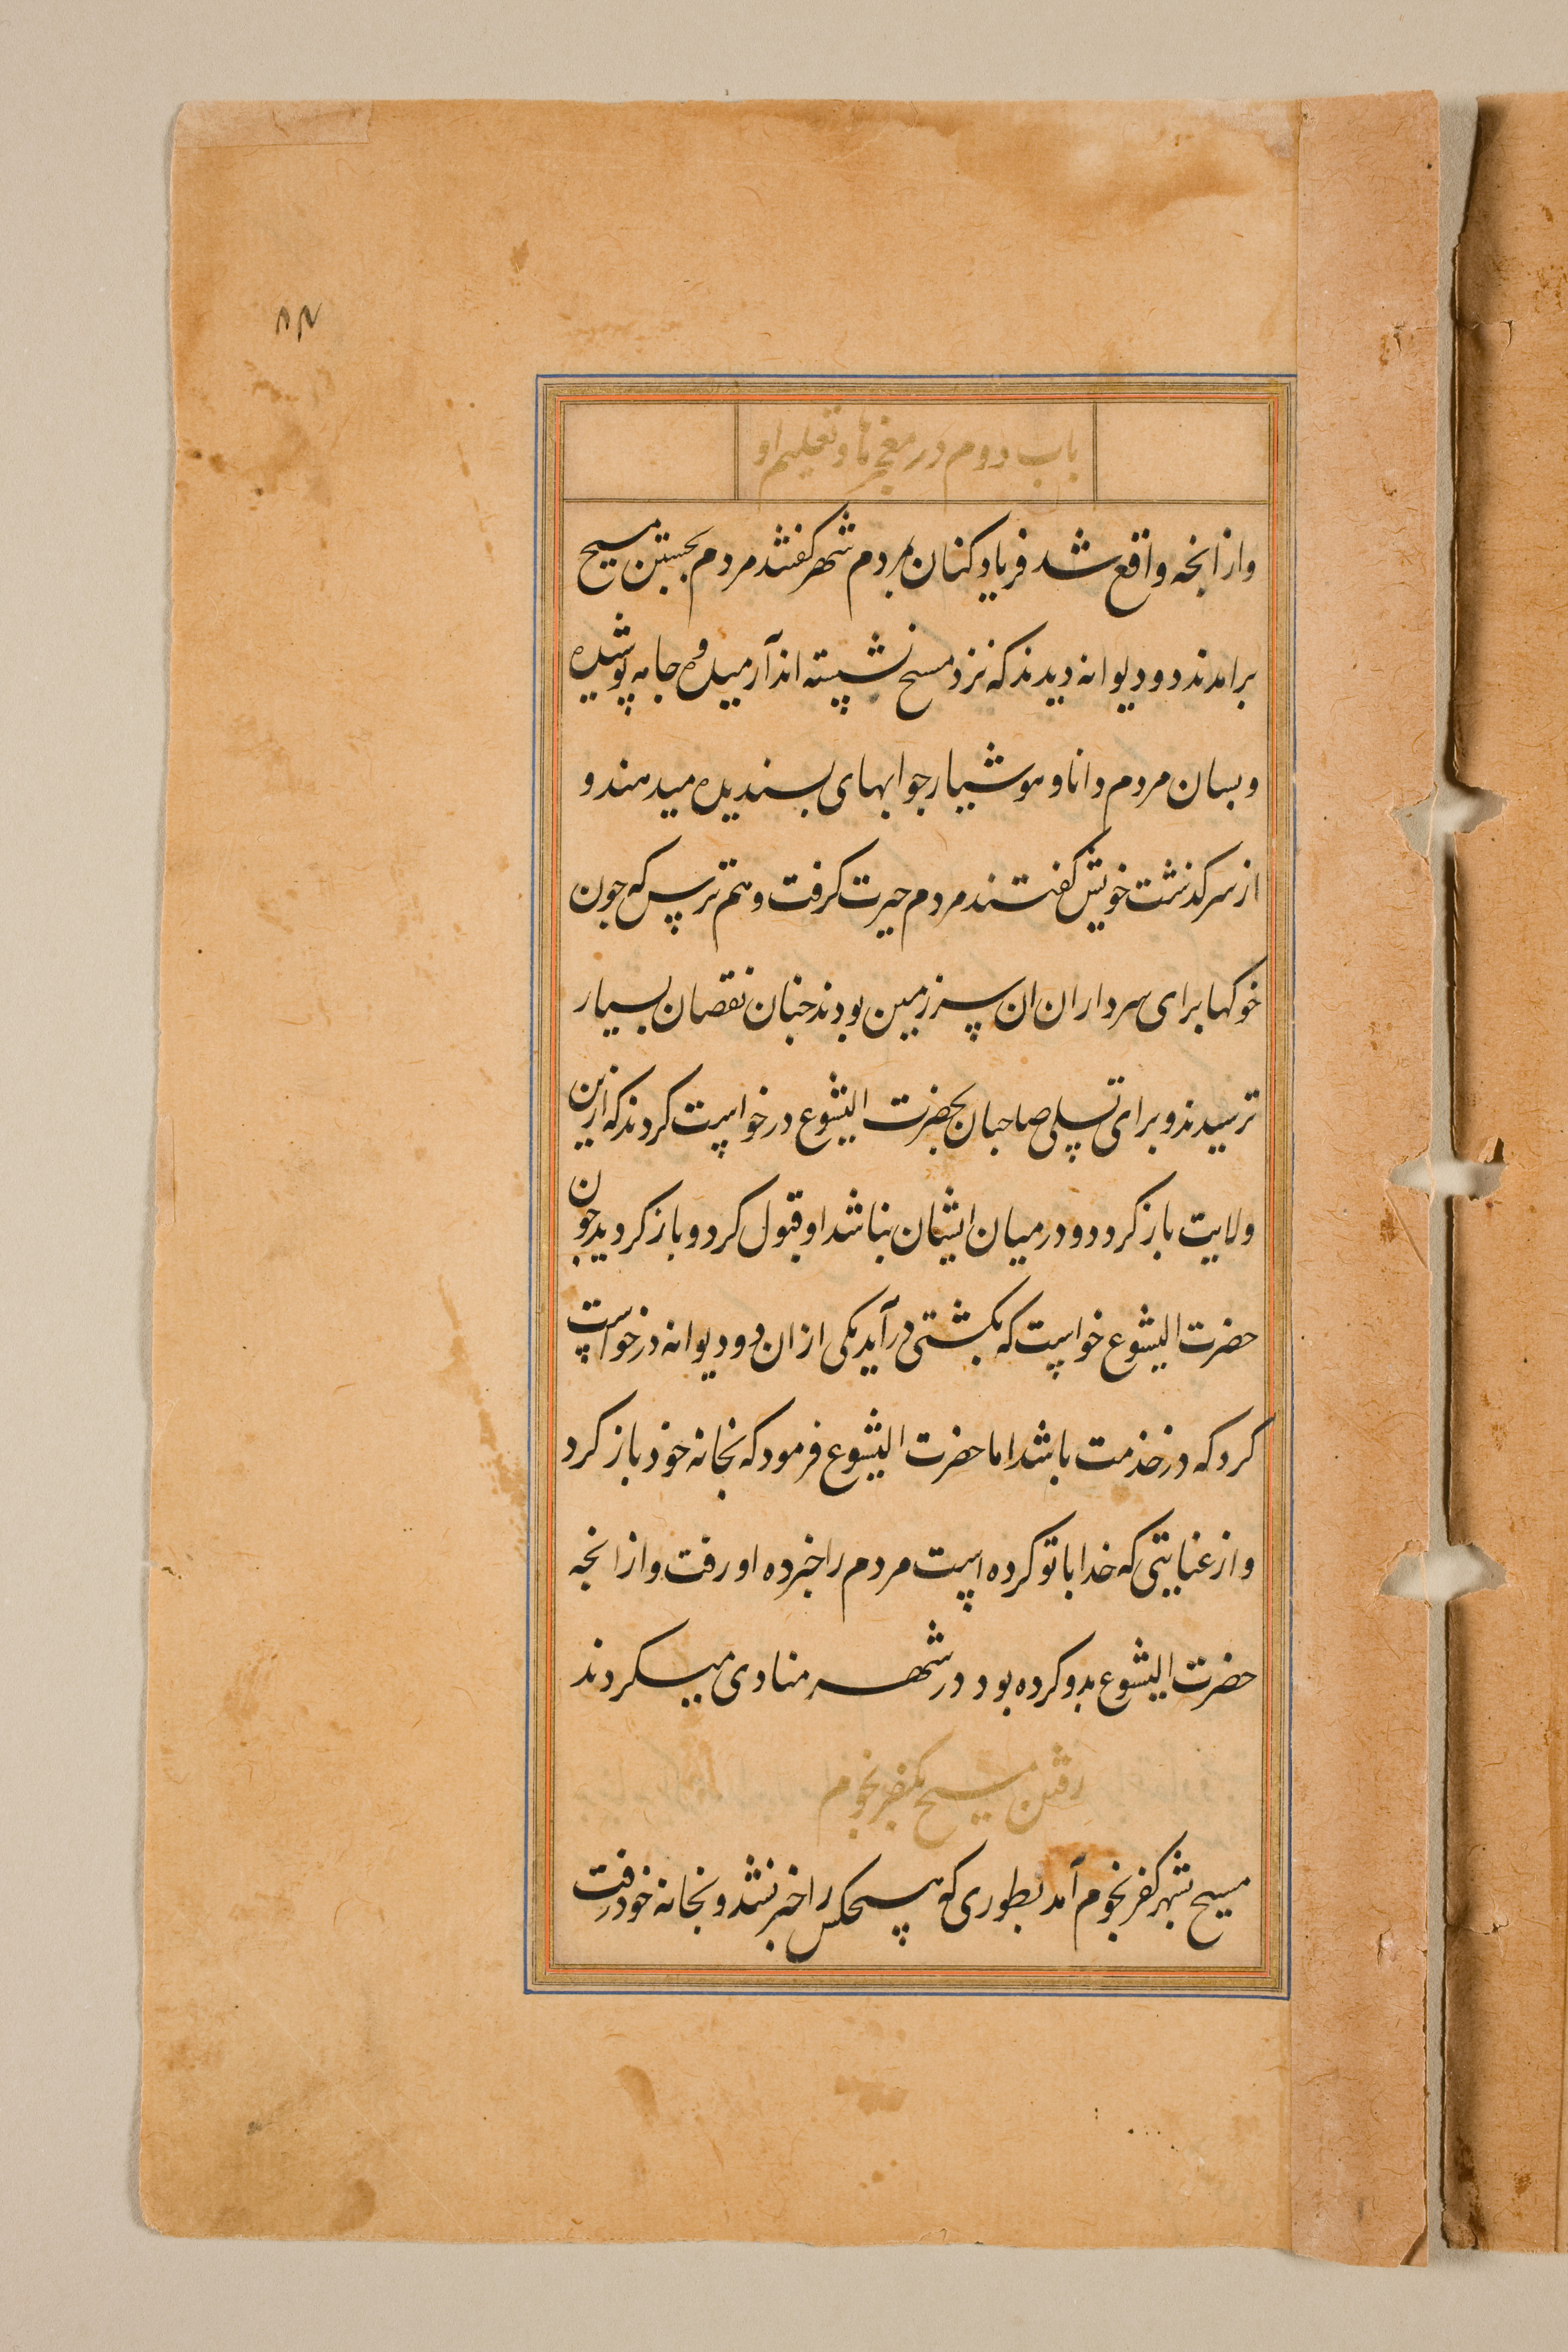 ۸۲
باب دوم در معجزها و تعلیم او
و از انچه واقع شد فریاد کنان بمردم شهر کفتند مردم بجستن مسیح
برامدند دو دیوانه دیدند که نزد مسیح نشسته اند آرمیده و جامه پوشیده
و بسان مردم دانا و هوشیار جوابهای پسندیده میدهند و
از سرکذشت خویش کفتند مردم حیرت کرفت و هم ترس که چون
خوکها برای سرداران ان سرزمین بودند چنان نقصان بسیار
ترسیدند و برای تسلی صاحبان بحضرت ایشوع درخواست کردند که ازین
ولایت باز کردد و در میان ایشان نباشد او قبول کرد و باز کردید چون
حضرت ایشوع خواست که بکشتی درآید یکی از ان دو دیوانه درخواست
کرد که در خدمت باشد اما حضرت ایشوع فرمود که بخانه خود باز کرد
و از عنایتی که خدا با تو کرده است مردم را خبر ده او رفت و از انچه
حضرت ایشوع بدو کرده بود در شهر منادی میکردند
رفتن مسیح بکفرنحوم
مسیح بشهر کفرنحوم آمد بطوری که هیچکس را خبر نشد و بخانه خود رفت